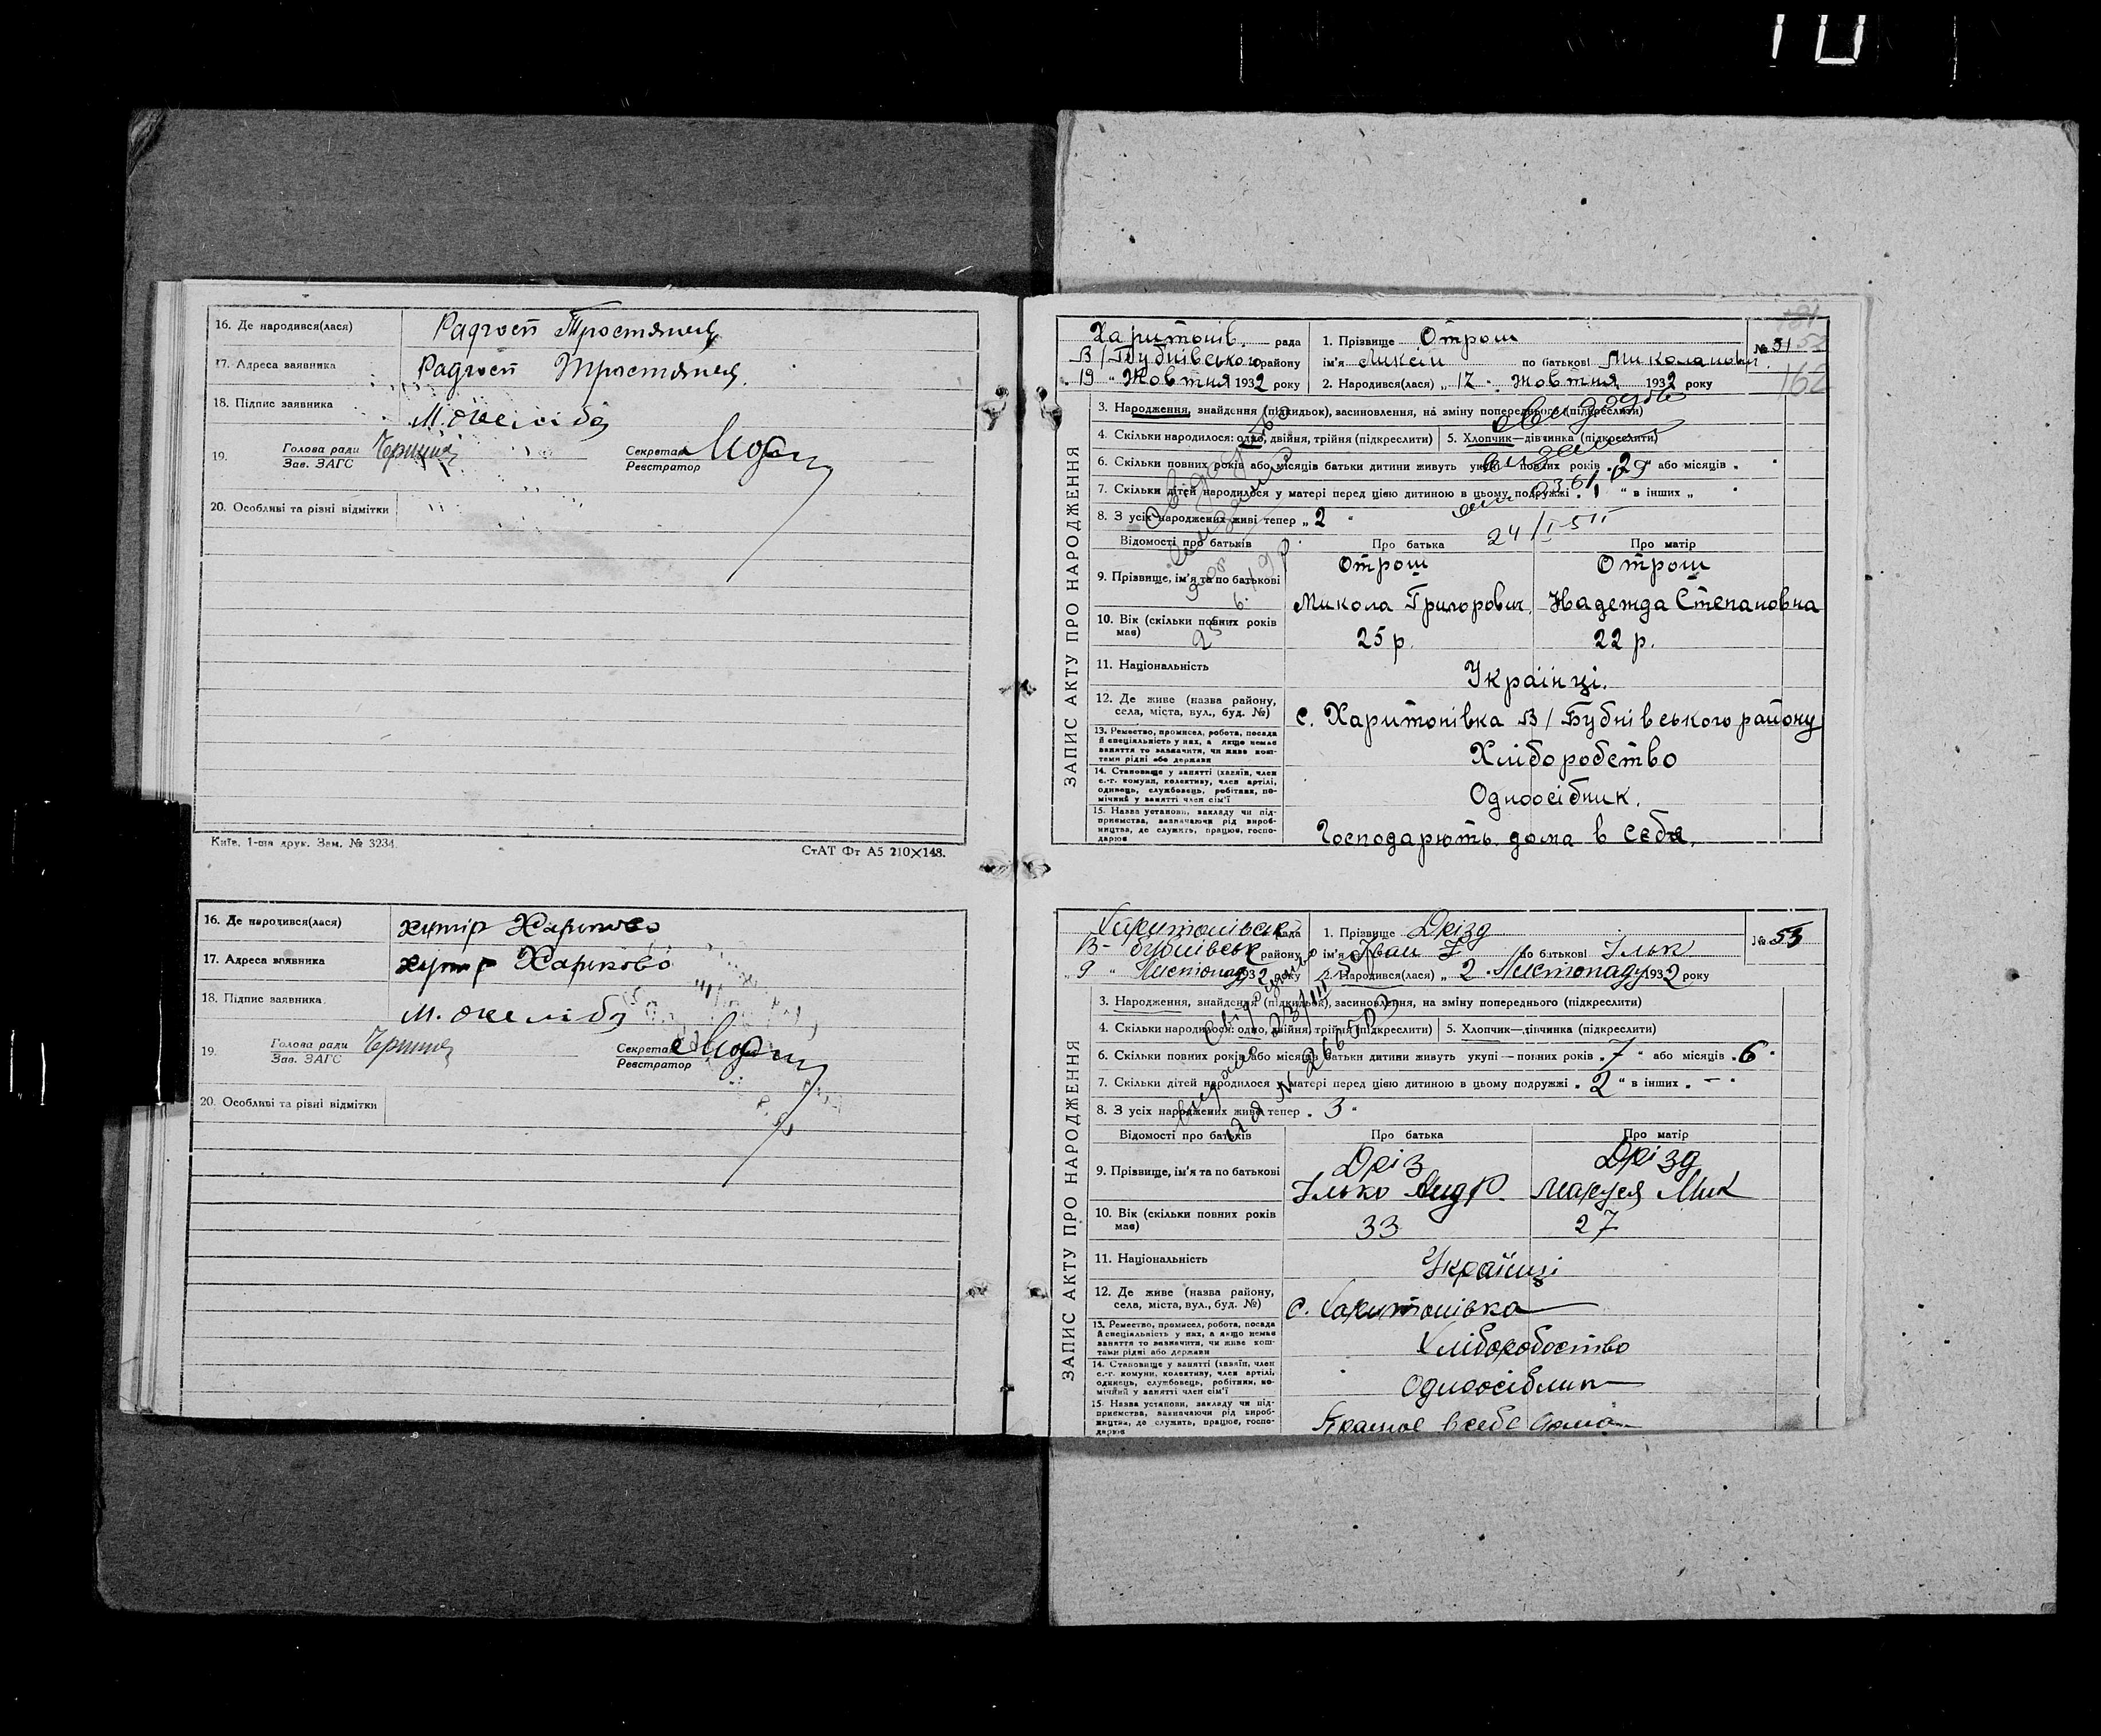 10
16. Де народився(лася) Радгосп Тростянець
17. Адреса заявника Радгосп Тростянець.
18. Підпис заявника
19. Голова ради Секретар
Зав. ЗАГС Реєстратор
20. Особливі та різні відмітки
Київ, 1-ша друк. Зам. № 3234. СтАТ Фт А5 210×148.
16. Де народився(лася) хутір
17. Адреса заявника хутір
18. Підпис заявника
19. Голова ради Секретар
Зав. ЗАГС Реєстратор
20. Особливі та різні відмітки
ЗАПИС АКТУ ПРО НАРОДЖЕННЯ
Харитонів. рада
В/Бубнівського району
„ 19 " Жовтня 1932 року
1. Прізвище Отрош
ім'я по батькові Миколаович
2. Народився(лася) „ 12 " жовтня 1932 року
№ 51
162
3. Народження, знайдення (підкидьок), засиновлення, на зміну попереднього (підкреслити)
4. Скільки народилося: одно, двійня, трійня (підкреслити) 5. Хлопчик—дівчинка (підкреслити)
6. Скільки повних років або місяців батьки дитини живуть укупі — повних років „ 2 " або місяців „
7. Скільки дітей народилося у матері перед цією дитиною в цьому подружжі „ 1 " в інших „
8. З усіх народжених живі тепер „ 2 "
Відомості про батьків Про батька Про матір
9. Прізвище, ім'я та по батькові Отрош Отрош
Микола Григорович Надежда Степановна
10. Вік (скільки повних років має) 25 р. 22 р.
11. Національність Українці.
12. Де живе (назва району, села, міста, вул., буд. №) с. Харитонівка В/Бубнівського району
13. Ремество, промисел, робота, посада й спеціяльність у них, а якщо немає заняття то зазначити, чи живе коштами рідні або держави Хліборобство
14. Становище у занятті (хазяїн, член с.-г. комуни, колективу, член артілі, одинець, службовець, робітник, помічний у занятті член сім'ї Одноосібник.
15. Назва установи, закладу чи підприємства, зазначаючи рід виробництва, де служить, працює, господарює Господарють дома в себе.
ЗАПИС АКТУ ПРО НАРОДЖЕННЯ
Харитонівськ рада
В-Бубнівськ району
„ 9 " Листопад 1932 року
1. Прізвище Дрізд
ім'я Іван І по батькові Ільк
2. Народився(лася) „ 2 " Листопаду 1932 року
№ 53
3. Народження, знайдення (підкидьок), засиновлення, на зміну попереднього (підкреслити)
4. Скільки народилося: одно, двійня, трійня (підкреслити) 5. Хлопчик—дівчинка (підкреслити)
6. Скільки повних років або місяців батьки дитини живуть укупі — повних років „ 7 " або місяців „ 6 "
7. Скільки дітей народилося у матері перед цією дитиною в цьому подружжі „ 2 " в інших „ – "
8. З усіх народжених живі тепер „ 3 "
Відомості про батьків Про батька Про матір
9. Прізвище, ім'я та по батькові Дріз Дрізд
Ілько Андр. Маруся Мик
10. Вік (скільки повних років має) 33 27
11. Національність Українці
12. Де живе (назва району, села, міста, вул., буд. №) с. Харитонівка
13. Ремество, промисел, робота, посада й спеціяльність у них, а якщо немає заняття то зазначити, чи живе коштами рідні або держави Хліборобоство
14. Становище у занятті (хазяїн, член с.-г. комуни, колективу, член артілі, одинець, службовець, робітник, помічний у занятті член сім'ї Одноосібник
15. Назва установи, закладу чи підприємства, зазначаючи рід виробництва, де служить, працює, господарює в себе дома